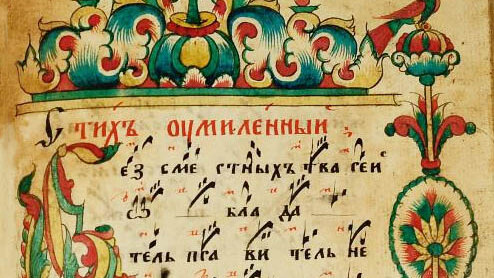 Стихъ оумиленный
Без сме стныхъ тва рей
ѿ бла да
тель пра ви тель не